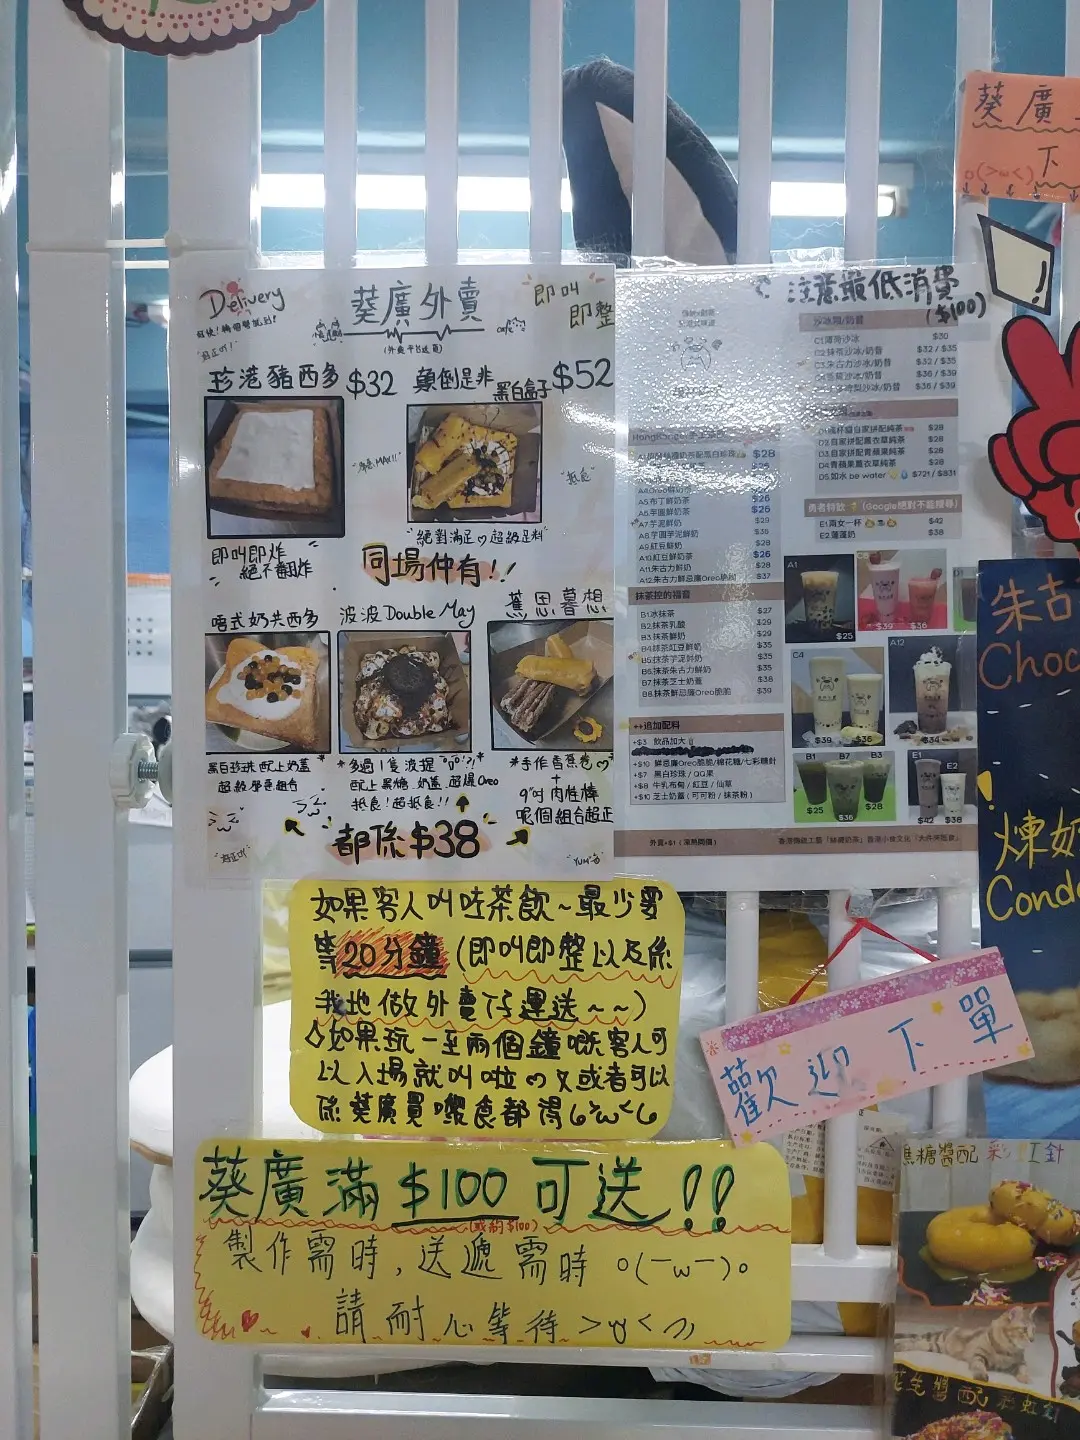 葵廣
下
o(>w<)
Delivery
葵廣外賣
即叫
即整
café
珍港豬西多 $32
顛倒是非
黑白盒子 $52
即叫即炸
絕不翻炸
"絕對滿足♡超級足料"
"抵食"
同場仲有!!
唔式奶共西多
波波Double May
蕉思暮想
黑白珍珠配上奶蓋
配上黑糖.奶蓋.超爆Oreo
抵食!超抵食!!
*手作香蕉卷♡*
+
呢個組合超正
都係$38
"YUM"
注意最低消費
($100)
沙冰類/奶昔
$30
C2抹茶沙冰/奶昔 $32 / $35
C3.朱古力沙冰/奶昔 $32 / $35
$36 / $39
$36 / $39
$28
D2.自家拼配薰衣草純茶 $28
D3.自家拼配青蘋果純茶 $28
D4.青蘋果薰衣草純茶 $28
D5.如水 be water $721 / $831
勇者特飲 (Google絕對不能搜尋)
E1.兩女一杯 $42
E2.蓮蓬奶 $38
$28
A5.布丁鮮奶 $26
A6.芋圓鮮奶 $26
A7.芋泥鮮奶 $29
A8.芋圓芋泥鮮奶 $35
A9.紅豆鮮奶 $28
A10.紅豆鮮奶茶 $26
A11.朱古力鮮奶 $28
A12.朱古力鮮忌廉Oreo脆脆 $37
抹茶控的福音
B1冰抹茶 $27
B2.抹茶乳酸 $29
B3.抹茶鮮奶 $29
B4.抹茶紅豆鮮奶 $35
B5.抹茶芋泥鮮奶 $35
B6.抹茶朱古力鮮奶 $35
B7.抹茶芝士奶蓋 $38
B8.抹茶鮮忌廉Oreo脆脆 $39
++追加配料
+$3 飲品加大
+$10 鮮忌廉Oreo脆脆/棉花糖/七彩糖針
+$7 黑白珍珠 / QQ果
+$8 牛乳布甸 / 紅豆 / 仙草
+$10 芝士奶蓋 ( 可可粉 / 抹茶粉 )
A1
$25
$39 $36
C4
$39 $36
A12
$34
B1 B7 B3
$25 $36 $28
E1 E2
$42 $38
朱古
Choc
煉奶
Cond
如果客人叫咗茶飲~最少要
等20分鐘(即叫即整以及係
我地做外賣仔運送~~)
如果玩一至兩個鐘嘅客人可
以入場就叫啦♡又或者可以
係葵廣買嘢食都得
歡迎下單
葵廣滿$100可送!!
(或約$100)
製作需時,送遞需時 o(-w-)o
請耐心等待
焦糖醬配彩虹針
花生醬配彩虹針